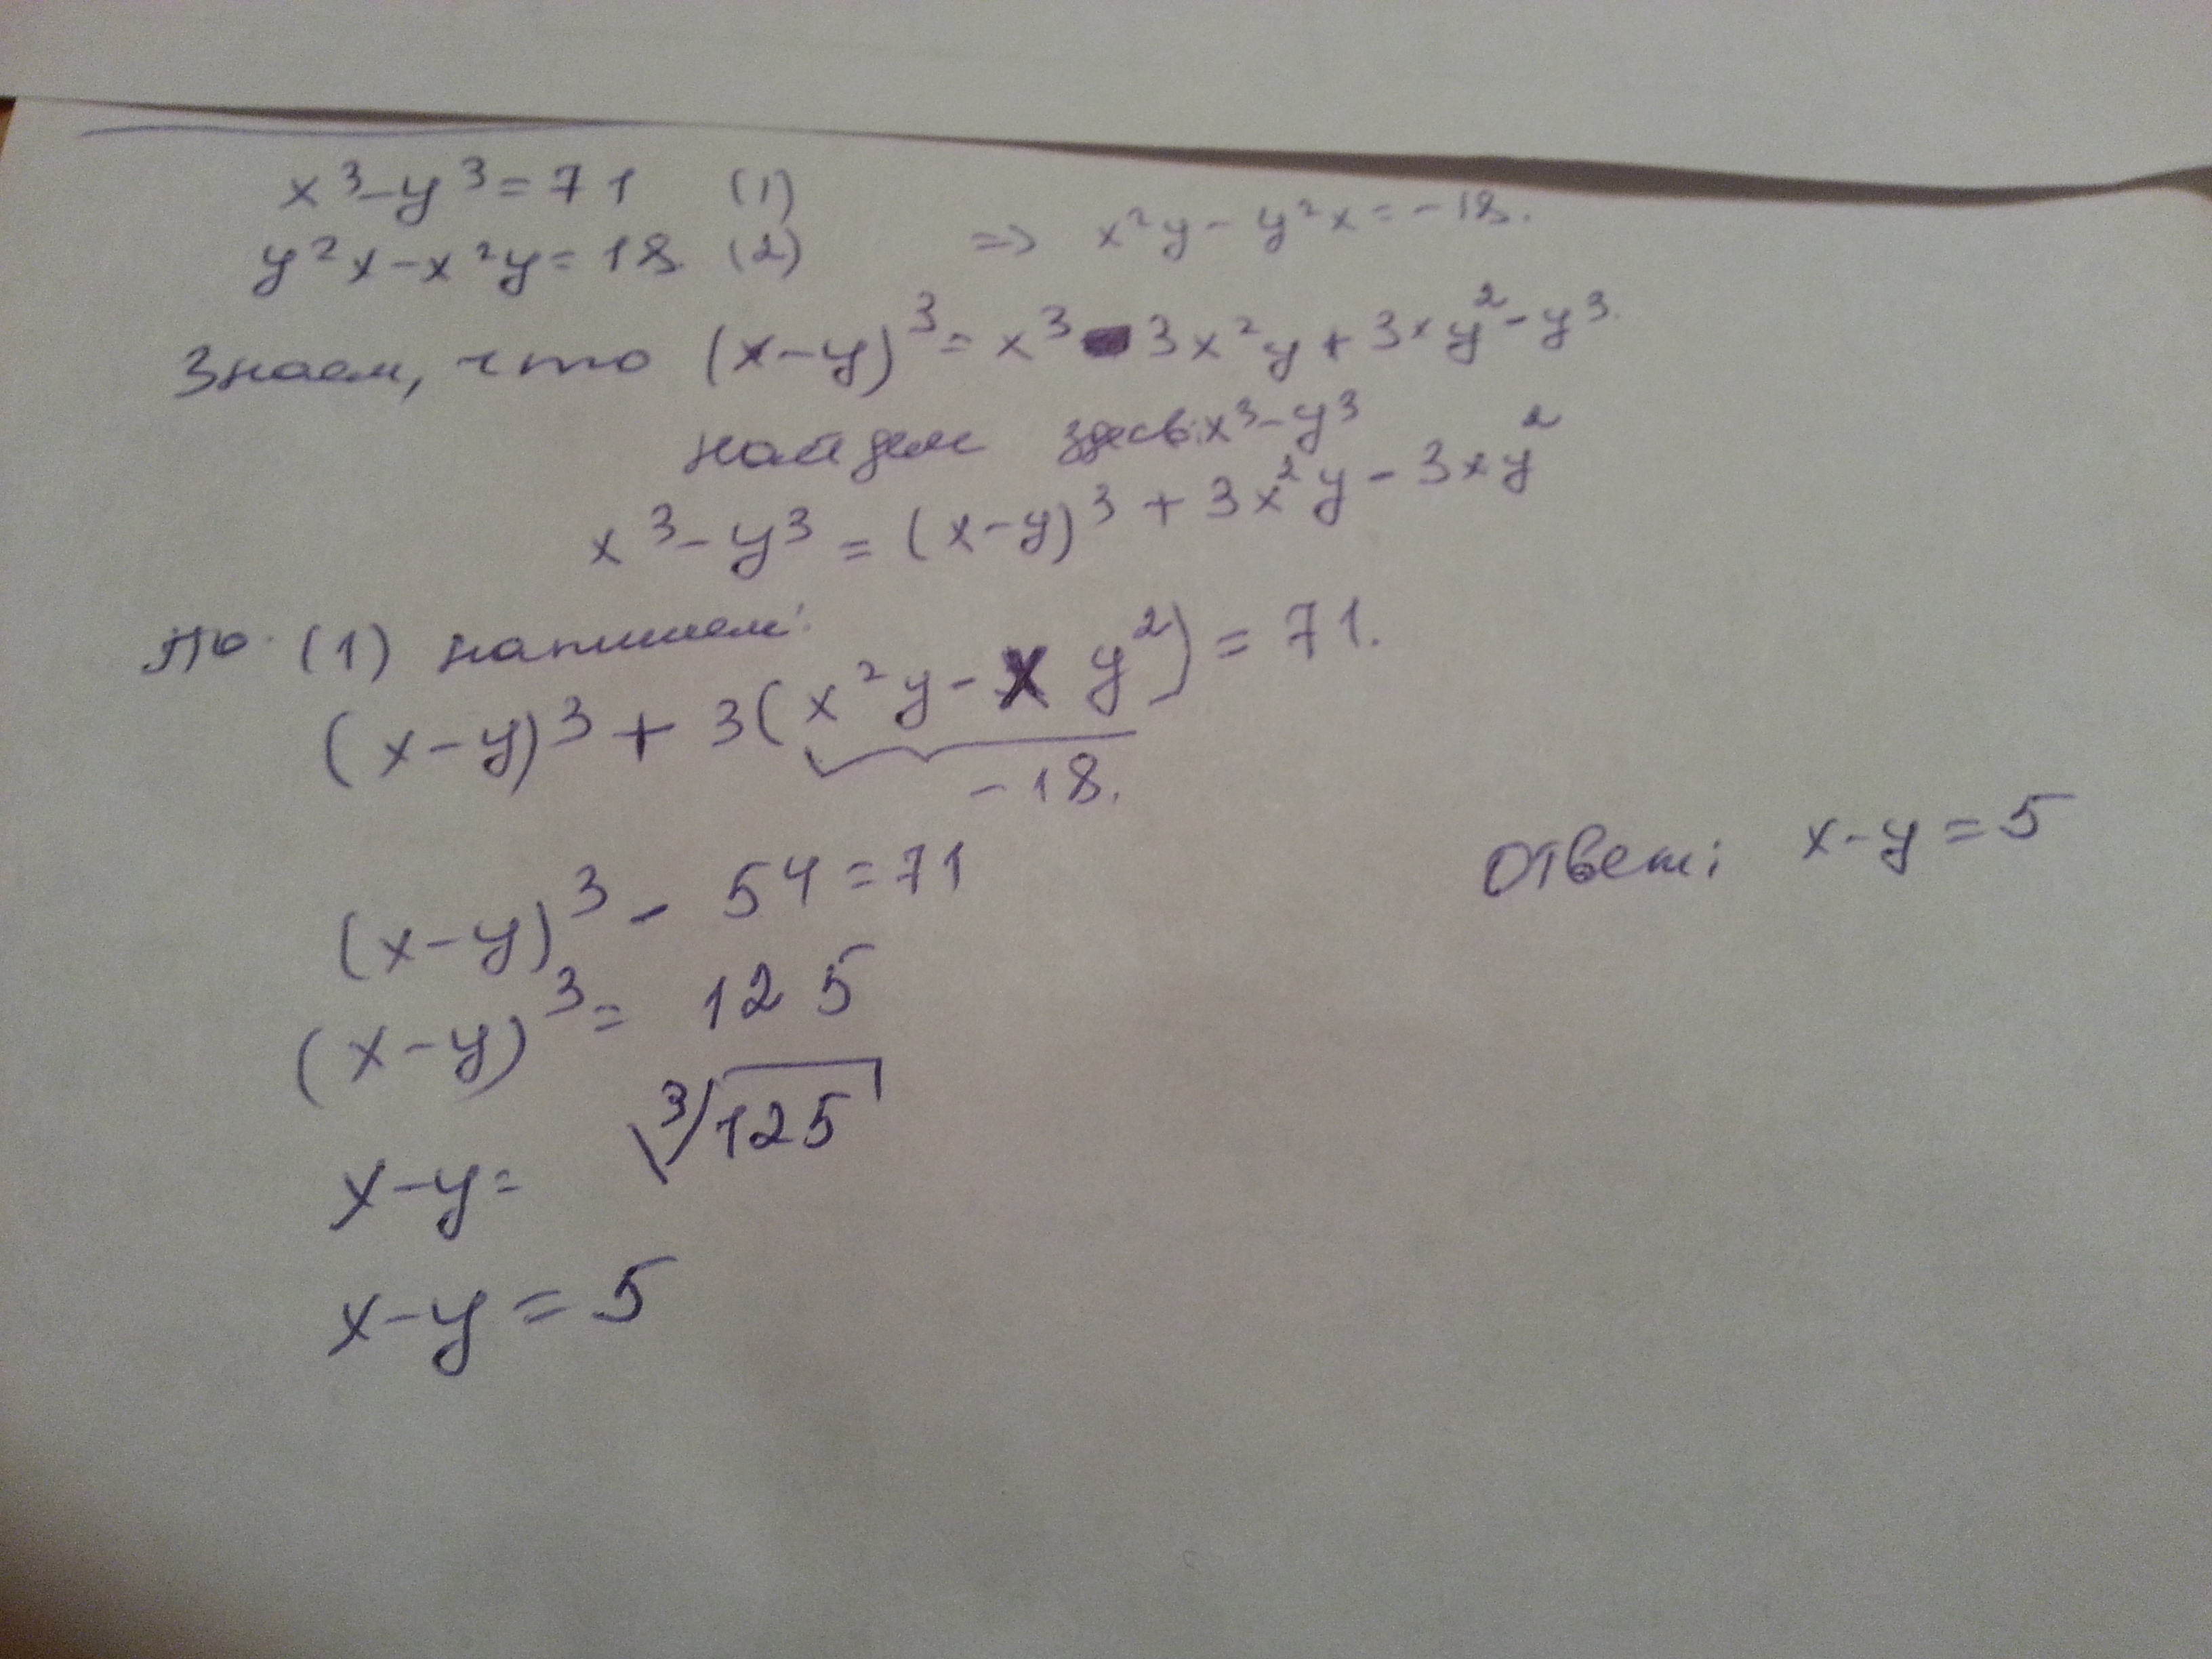 x³-y³=71 (1)
y²x-x²y=18 (2) => x²y-y²x=-18.
Знаем, что (x-y)³=x³-3x²y+3xy²-y³.
найдем здесь: x³-y³
x³-y³=(x-y)³+3x²y-3xy²
По (1) напишем:
(x-y)³+3(x²y-xy²)=71.
-18.
(x-y)³-54=71
Ответ: x-y=5
(x-y)³=125
x-y=³√125
x-y=5